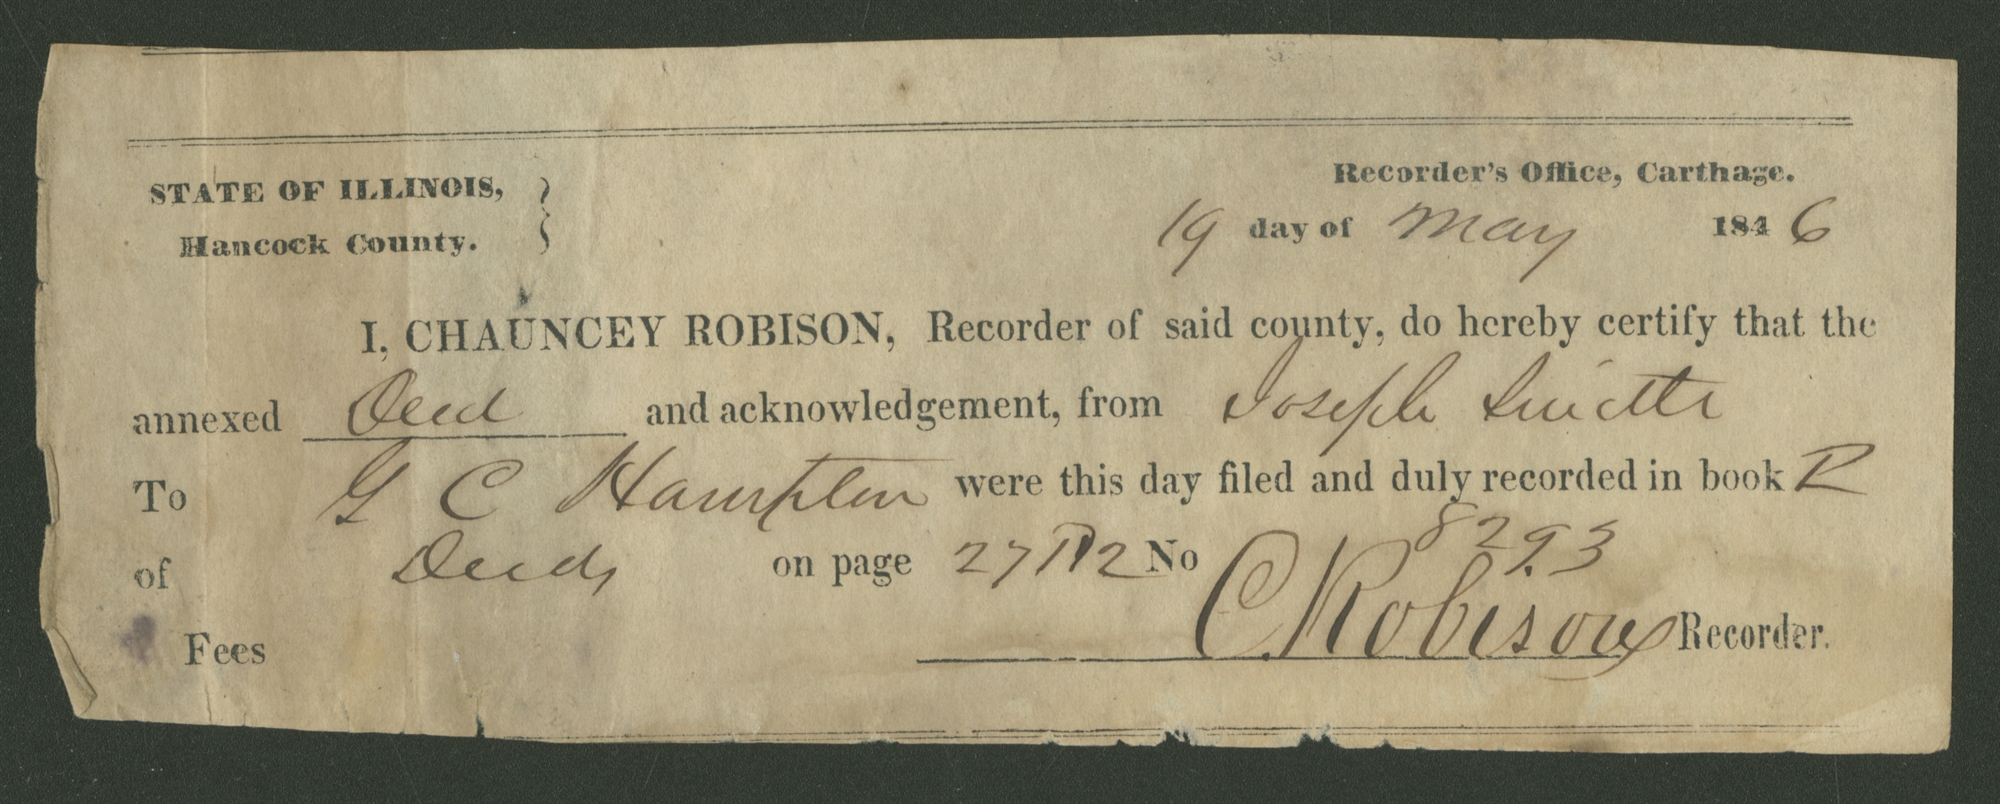 STATE OF ILLINOIS,
Hancock County.
Recorder's Office, Carthage.
19 day of May 1846
I, CHAUNCEY ROBISON, Recorder of said county, do hereby certify that the
annexed Deed and acknowledgement, from Joseph Smith
To G C Hampton were this day filed and duly recorded in book R
of Deeds on page 27 2 No 8293
Fees C. Robison Recorder.